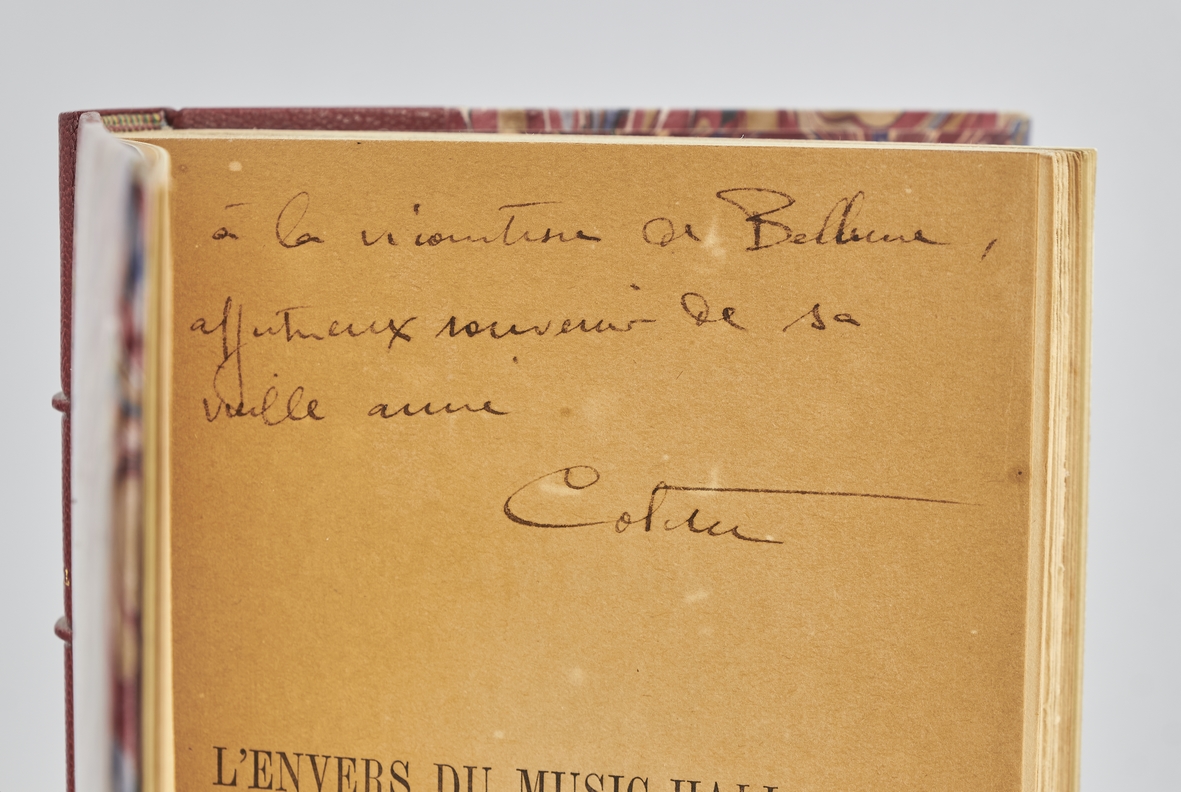 à la vicomtesse de Bellune,
affectueux souvenir de sa
vieille amie
Colette
L'ENVERS DU MUSIC-HALL